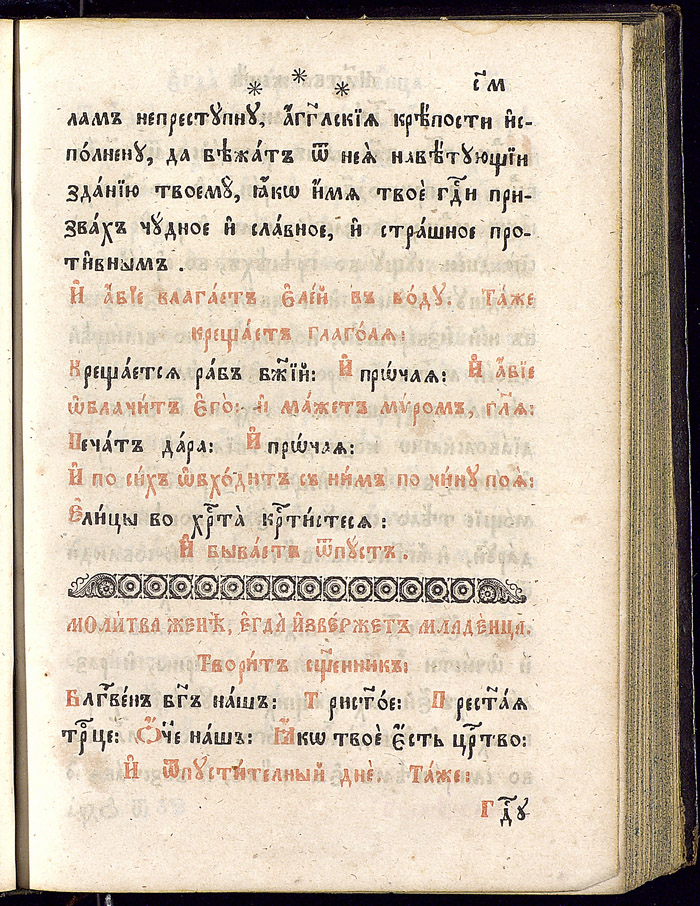 с҃м
ламъ непрестꙋпнꙋ, а҆́гг҃лскїѧ крѣ́пости и҆с-
по́лненꙋ, да бѣжа́тъ ѿ неѧ̀ навѣ́тꙋющїи
зда́нїю твоемꙋ̀, ꙗ҆́кѡ и҆́мѧ твоѐ гдⷭ҇и при-
зва́хъ чꙋ́дное и҆ сла́вное, и҆ стра́шное про-
ти̑внымъ .
И҆ а҆́бїе влага́етъ є҆ле́й въ во́дꙋ. Та́же
креща́етъ глаго́лѧ:
Креща́етсѧ ра́бъ бж҃їй: И҆ прѡ́чаѧ: И҆ а҆́бїе
ѡ҆блачи́тъ є҆го̀: и҆ ма́жетъ мѵ́ромъ, гл҃ѧ:
Печа́ть да́ра: И҆ прѡ́чаѧ:
И҆ по си́хъ ѡ҆бхо́дитъ съ ни́мъ по чи́нꙋ поѧ̀:
Є҆ли́цы во хрⷭ҇та̀ крⷭ҇ти́стесѧ :
И҆ быва́етъ ѿпꙋ́стъ .
МОЛИ́ТВА ЖЕНѢ̀, Є҆ГДА̀ И҆ЗВЕ́РЖЕТЪ МЛАДЕ́НЦА.
Твори́тъ сщ҃е́нникъ:
Блгⷭ҇ве́нъ бг҃ъ на́шъ: Трист҃о́е: Прест҃а́ѧ
трⷪ҇це: Ѻ҆́ч҃е на́шъ: Ꙗ҆́кѡ твоѐ є҆́сть црⷭ҇тво:
И҆ ѿпꙋсти́телный днѐ. Та́же:
Гдⷭ҇ꙋ